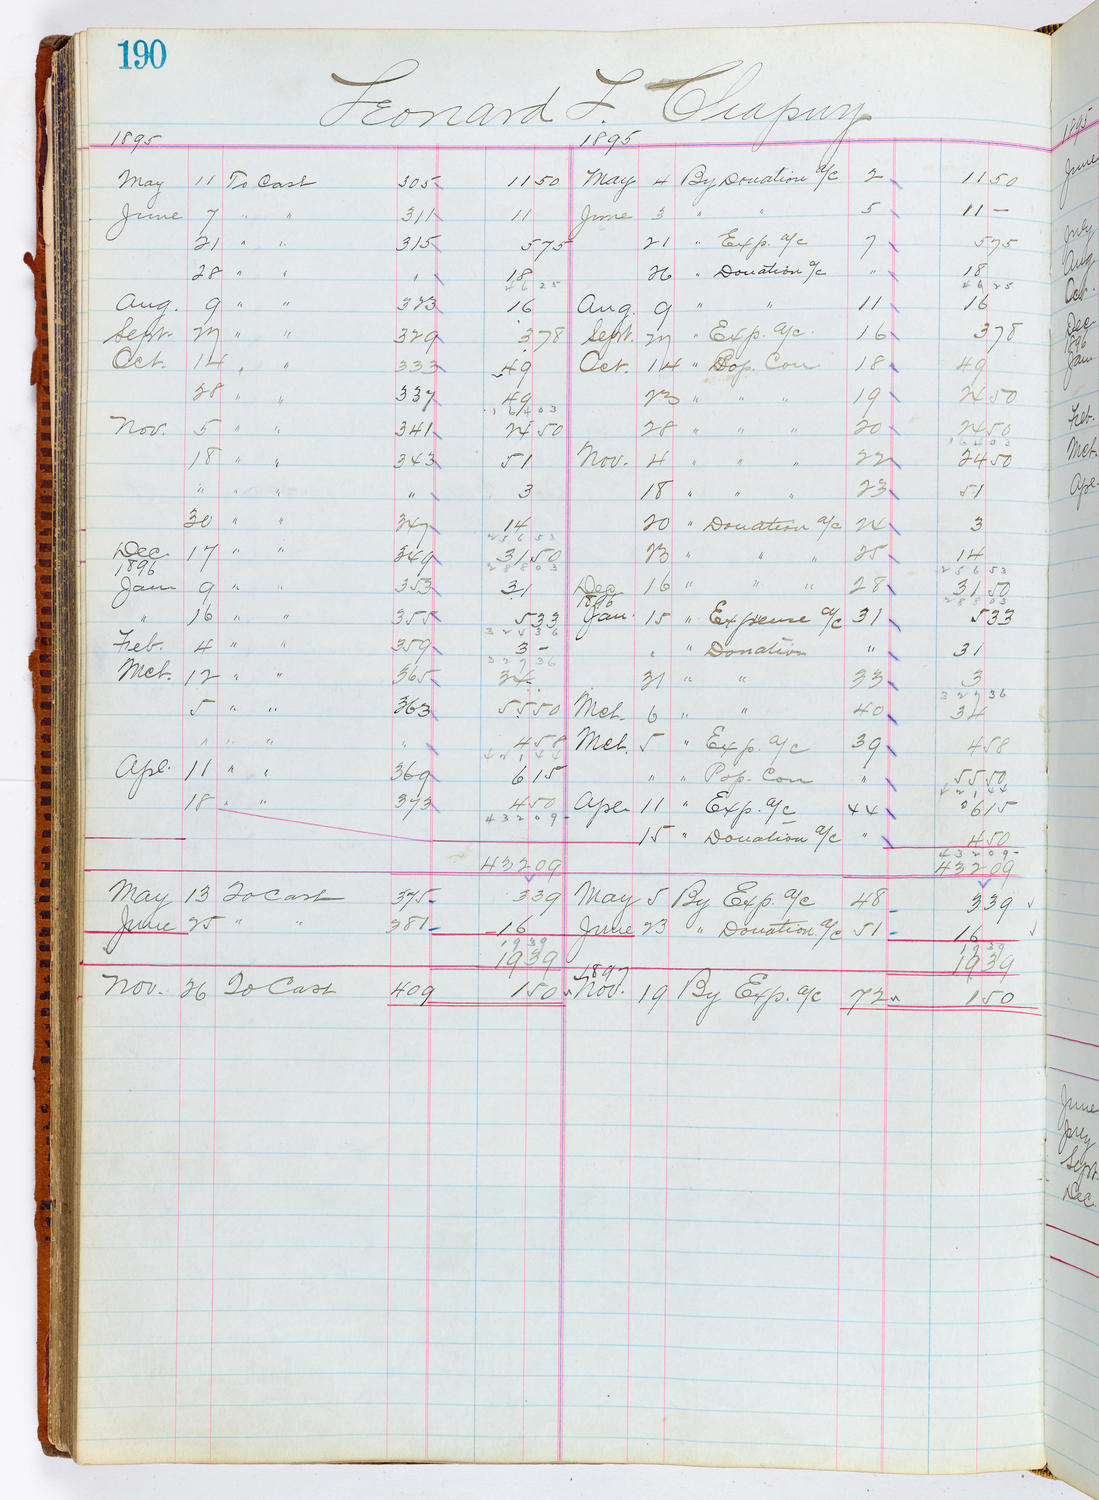 190
Leonard F. Chapuy
1895 1895
May 11 To Cash 305 11 50 May 4 By Donation a/c 2 11 50
June 7 " " 311 11 June 3 " " 5 11 –
21 " " 315 5 75 21 " Exp. a/c 7 5 75
28 " " " 18 26 " Donation a/c " 18
46 25 46 25
Aug. 9 " " 323 16 Aug. 9 " " 11 16
Sept. 27 " " 329 3 78 Sept. 27 " Exp. a/c. 16 3 78
Oct. 14 " " 333 49 Oct. 14 " Pop. Con 18 49
28 " " 337 49 23 " " " 19 24 50
164 03
Nov. 5 " " 341 24 50 28 " " " 20 24 50
164 03
18 " " 343 51 Nov. 4 " " " 22 24 50
" " " " 3 18 " " " 23 51
30 " " 347 14 20 " Donation a/c 24 3
256 53
Dec 17 " " 349 31 50 23 " " " 25 14
1896 288 03 256 53
Jan 9 " " 353 31 Dec 16 " " " 28 31 50
1896 288 03
" 16 " " 355 5 33 Jan. 15 " Expense a/c 31 5 33
324 36
Feb. 4 " " 359 3 – " " Donation " 31
327 36
Mch. 12 " " 365 34 31 " " 33 3
327 36
5 " " 363 55 50 Mch. 6 " " 40 34
" " " " 4 58 Mch. 5 " Exp. a/c 39 4 58
421 44
Apl. 11 " " 369 6 15 " " Pop. Con " 55 50
421 44
18 " " 373 4 50 Apl 11 " Exp. a/c 44 6 15
432 09 –
15 " Donation a/c " 4 50
432 09 –
432 09 432 09
May 13 To Cash 375 3 39 May 5 By Exp. a/c 48 3 39
June 25 " " 381 16 June 23 " Donation a/c 51 16
19 39 19 39
19 39 19 39
1897
Nov. 26 To Cash 409 1 50 Nov. 19 By Exp. a/c 72 1 50
1895
June
July
Aug.
Oct.
Dec
1896
Jan
Feb.
Mch.
Apl.
June
July
Sept.
Dec.